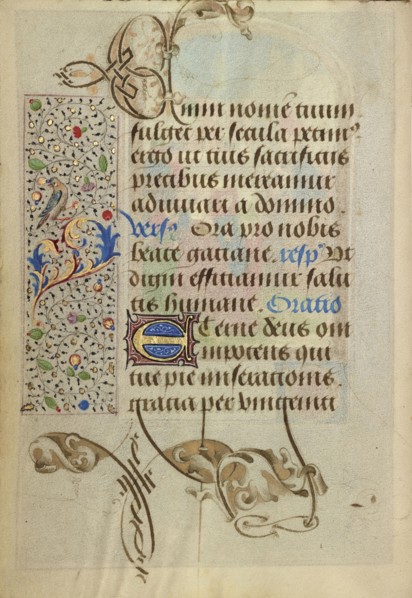 Cuius nomē tuum
fulget per secula petim⁹
ergo ut tuis sacrificiis
precibus mereamur
adiuuari a domino.
vers⁹ Ora pro nobis
beate gatiane. resp⁹ Vt
digni efficiamur salu
tis humane. Oratio
Eterne deus om
nipotens qui
tue pie miseracionis.
gracia per